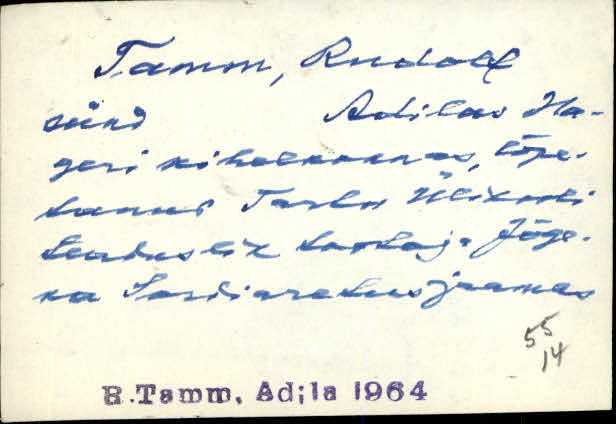 Tamm, Rudolf
sünd Adilas Ha-
geri kihelkonnas, lõpe-
tanud Tartu Ülikooli
teaduslik töötaja Jõge-
va Sordiaretusjaamas
55
14
R.Tamm, Adila 1964